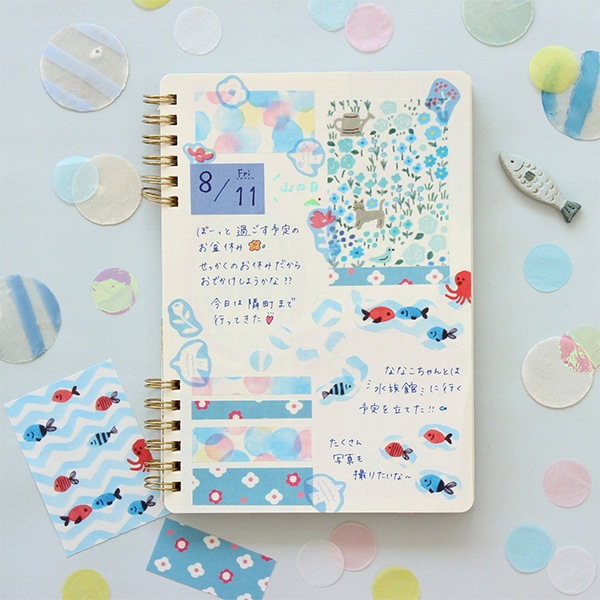 8/11 Fri
山の日
ぼーっと過ごす予定の
お盆休み
せっかくのお休みだから
おでかけしようかな??
今日は隣町まで
行ってきた
ななこちゃんとは
水族館 に行く
予定を立てた!!
たくさん
写真も
撮りたいな~